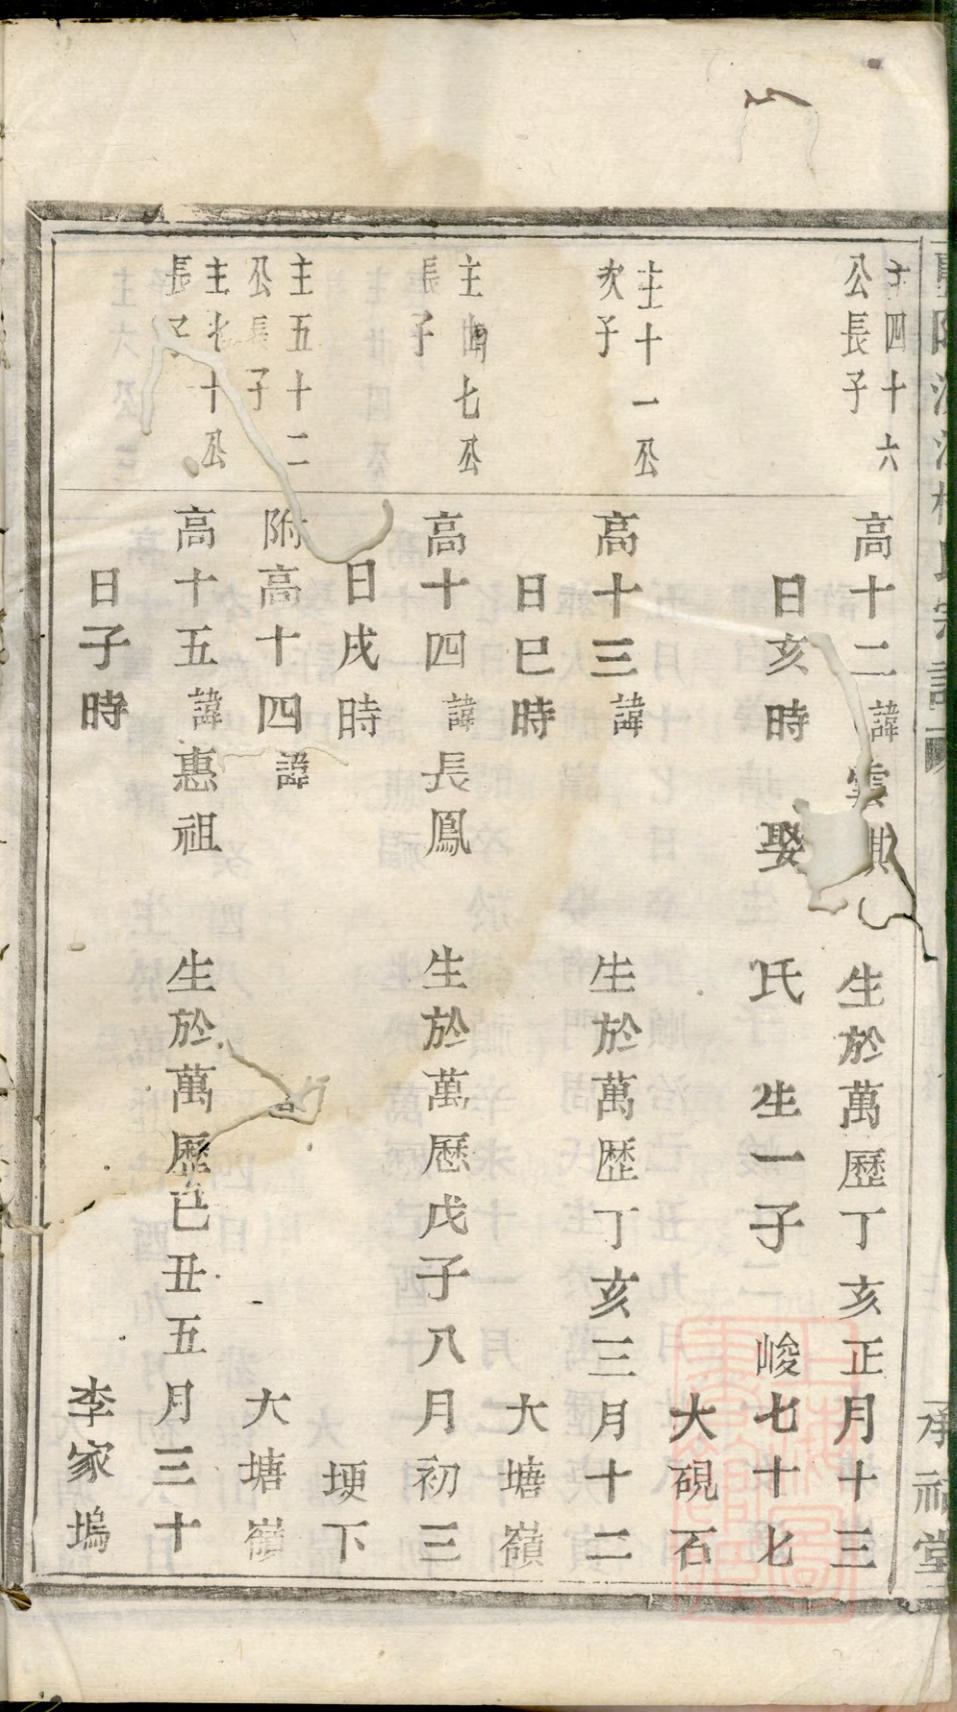 承祠堂
主四十六
公長子
高十二諱雲 生於萬歷丁亥正月十三
日亥時 娶 氏 生一子 峻七十七
大硯石
主十一公
次子
高十三諱 生於萬歴丁亥三月十二
日巳時 大塘嶺
主 七公
長子
高十四諱長鳳 生於萬歷戊子八月初三
日戌時 埂下
主五十二
公長子
附高十四諱 大塘嶺
主七十公
長子
高十五諱惠祖 生於萬歷已丑五月三十
日子時 李家塢